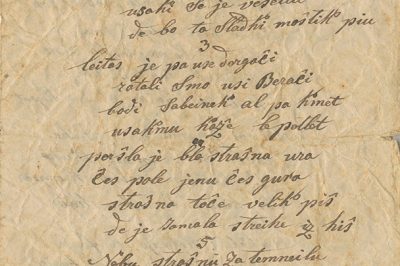 usaki se je veselu
de bo ta sladki mostik piu
3
leitos je pa use drgači
ratali smo usi Berači
bodi Sabeinek al pa kmet
usakmu kaže
4
peršla je bla strašna ura
čes pole jenu čes gura
strašna toče velik piš
de je jamala streihe iz hiš
5
Nebu strašnu zatemneilu